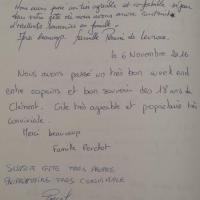 Nous avons passé un très agréable et confortable séjour
dans votre gîte où nous avons encore
d'excellents souvenirs en famille.
beaucoup. Famille de
le 6 Novembre 2016
Nous avons passé un très bon week end
entre copains et bon souvenir des 18 ans de
Clément. Gite très agréable et propriétaire très
conviviale.
Merci beaucoup
Famille Perchot
SUPER GITE TRES PROPRE
PROPRIETAIRE TRES CONVIVIALE